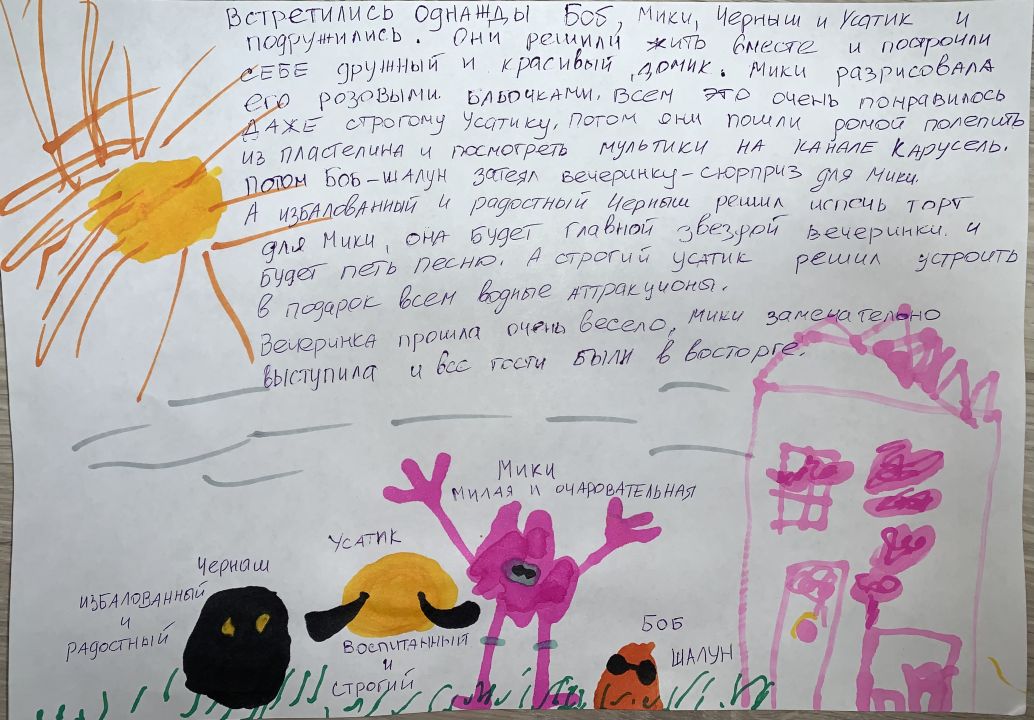 Встретились однажды Боб, Мики, Черныш и Усатик и
подружились. Они решили жить вместе и построили
СЕБЕ дружный и красивый домик. Мики разрисовала
его розовыми бабочками. Всем это очень понравилось
ДАЖЕ строгому Усатику. Потом они пошли домой полепить
из пластелина и посмотреть мультики на канале Карусель.
Потом Боб-шалун затеял вечеринку-сюрприз для Мики.
А избалованный и радостный Черныш решил испечь торт
для Мики, она будет главной звездой вечеринки и
будет петь песню. А строгий усатик решил устроить
в подарок всем водные аттракционы.
Вечеринка прошла очень весело, Мики замечательно
выступила и все гости были в восторге.
Мики
милая и очаровательная
Усатик
Черныш
избалованный
и
радостный
воспитанный
и
строгий
Боб
шалун